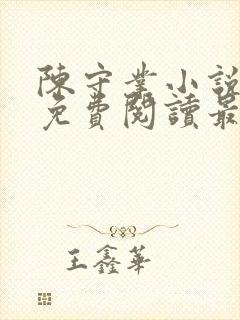 陳守業小說
免費閱讀最
王鑫華